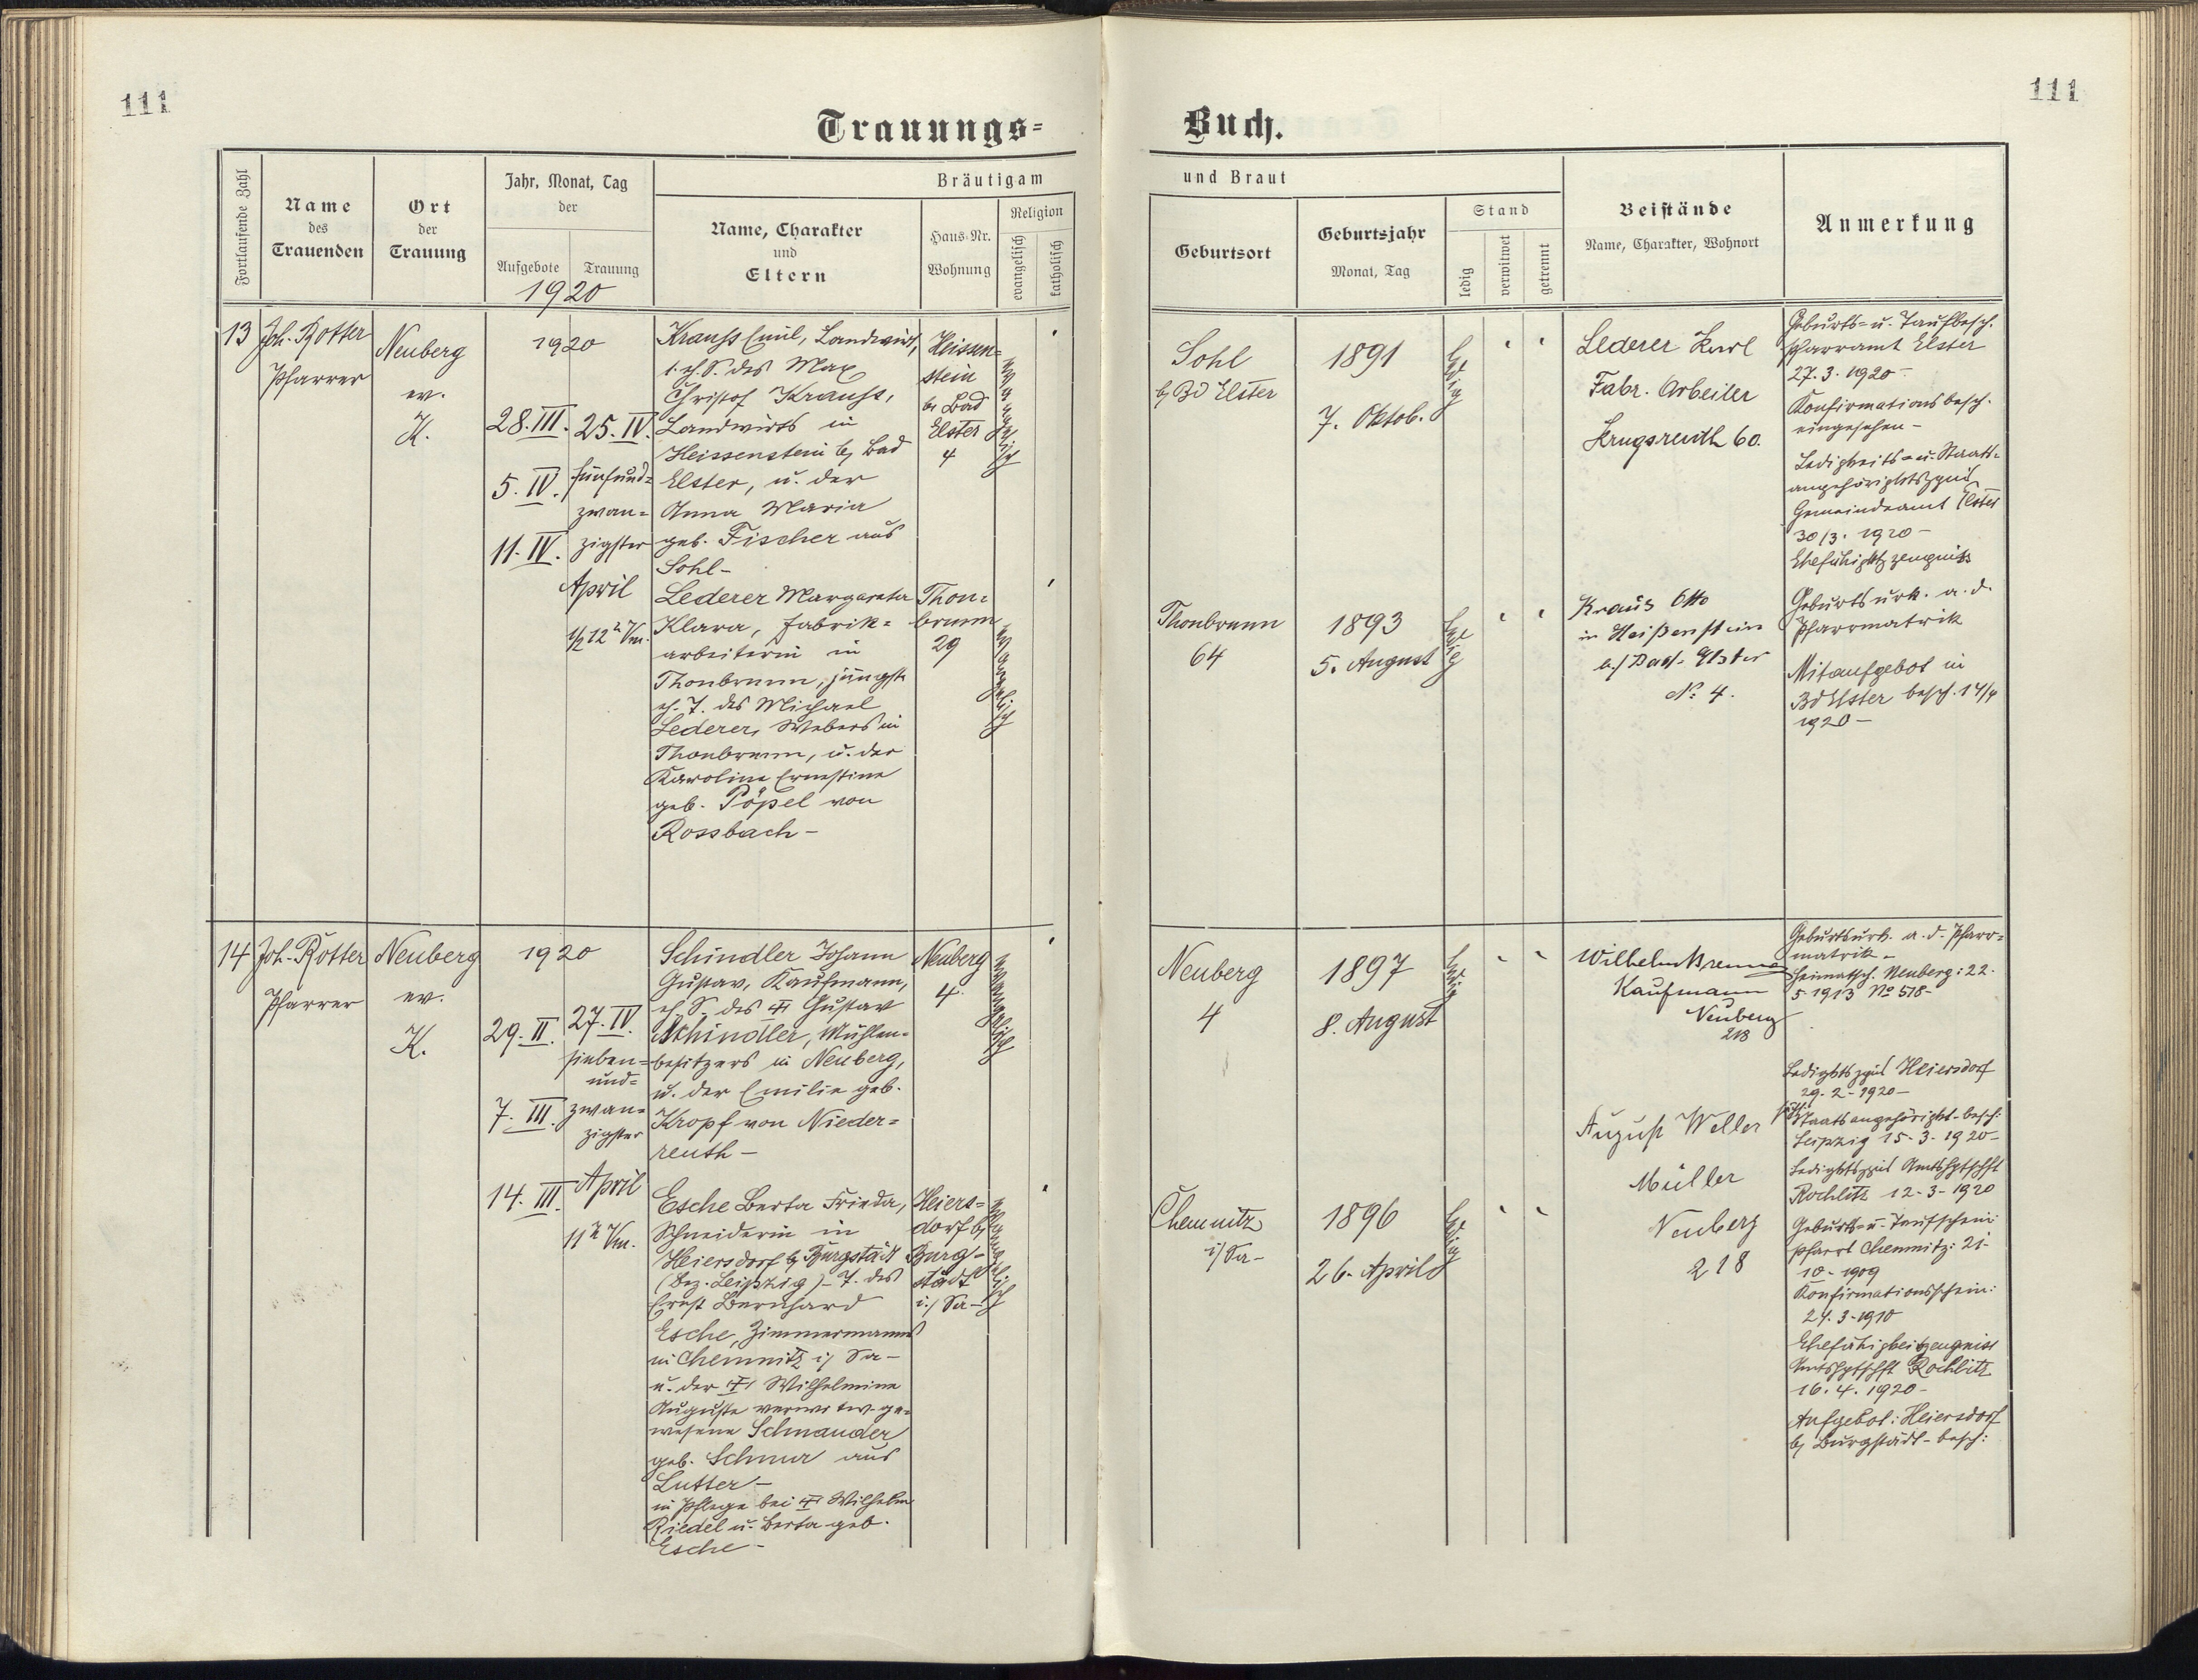 111
111
Trauungs=
Buch.
Fortlaufende Zahl
Name
des
Trauenden
Ort
der
Trauung
Jahr, Monat, Tag
der
Aufgebote
Trauung
1920
Bräutigam
Name, Charakter
und
Eltern
Haus-Nr.
Wohnung
Religion
evangelisch
katholisch
und Braut
Geburtsort
Geburtsjahr
Monat, Tag
Stand
ledig
verwitwet
getrennt
Beistände
Name, Charakter, Wohnort
Anmerkung
13
Joh. Rotter
Pfarrer
Neuberg
ev.
K.
1920
28. III.
5. IV.
11. IV.
25. IV.
fünfund=
zwan=
zigster
April
½12 h Vm.
Krauss Emil, Landwirt,
1. eh. S. des Max
Christof Krauss,
Landwirts in
Heissenstein b/ Bad
Elster, u. der
Anna Maria
geb. Fischer aus
Sohl-
Heissen=
stein
b/ Bad
Elster
4
evangelisch
Lederer Margareta
Klara, Fabrik=
arbeiterin in
Thonbrunn, jüngste
eh. T. des Michael
Lederer, Webers in
Thonbrunn, u. der
Karoline Ernestine
geb. Pöpel von
Rossbach-
Thon=
brunn
29
evangelisch
Sohl
b/ Bd Elster
1891
7. Oktob.
ledig
Lederer Karl
Fabr. Arbeiter
Krugsreuth 60.
Geburts- u. Taufbesch.
Pfarramt Elster
27. 3. 1920-
Konfirmationsbesch.
eingesehen-
Ledigkeits- u. Staats-
Gemeindeamt Elster
30/3. 1920-
Thonbrunn
64
1893
5. August
ledig
Kraus Otto
in Heißenstein
b./ Bad-Elster
No 4.
Geburtsurk. a. d.
Pfarrmatrik
Mitaufgebot in
Bd Elster besch. 14/4
1920-
14
Joh. Rotter
Pfarrer
Neuberg
ev.
K.
1920
29. II.
7. III.
14. III.
27. IV.
sieben=
und=
zwan=
zigster
April
11 h Vm.
Schindler Johann
Gustav, Kaufmann,
eh. S. des ✝ Gustav
Schindler, Mühlen-
besitzers in Neuberg,
u. der Emilie geb.
Kropf von Nieder=
reuth-
Neuberg
4.
evangelisch
Esche Berta Frieda,
Schneiderin in
Heiersdorf b/ Burgstädt
(Bez. Leipzig)- T. des
Ernst Bernhard
Esche, Zimmermanns
in Chemnitz i/ Sa-
u. der ✝ Wilhelmine
Auguste verwitw. ge=
wesene Schmauder
geb. Schnur aus
Lutter-
in Pflege bei ✝ Wilhelm
Riedel u. Berta geb.
Esche-
Heiers=
dorf b/
Burg-
städt
i./ Sa-
evangelisch
Neuberg
4
1897
8. August
ledig
Wilhelm
Kaufmann
Neuberg
213
Geburtsurk. a. d. Pfarr=
matrik-
Heimatsch. Neuberg: 22.
5 1913 No 518-
Heiersdorf
29. 2- 1920-
Leipzig 15- 3- 1920-
Rochlitz 12- 3- 1920
Chemnitz
i/ Sa-
1896
26. April
ledig
August Weller
Müller
Neuberg
218
Geburts- u. Taufschein
Chemnitz: 21-
10- 1909
Konfirmationsschein:
24. 3- 1910
Ehefähigkeitszeugniss
Rochlitz
16. 4. 1920-
Aufgebot: Heiersdorf
b/ Burgstädt- besch: